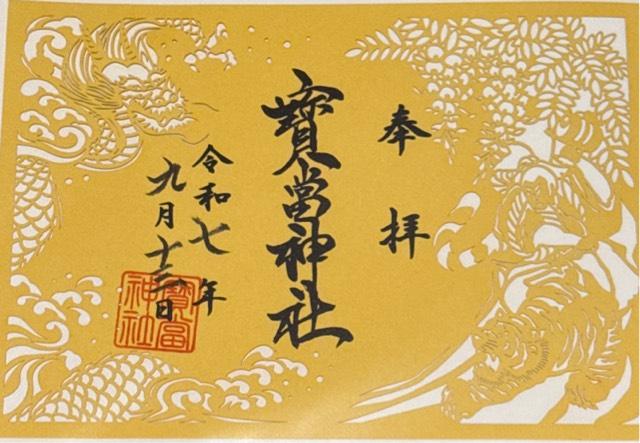 奉拝
寶當神社
令和七年
九月十三日
寶當
神社